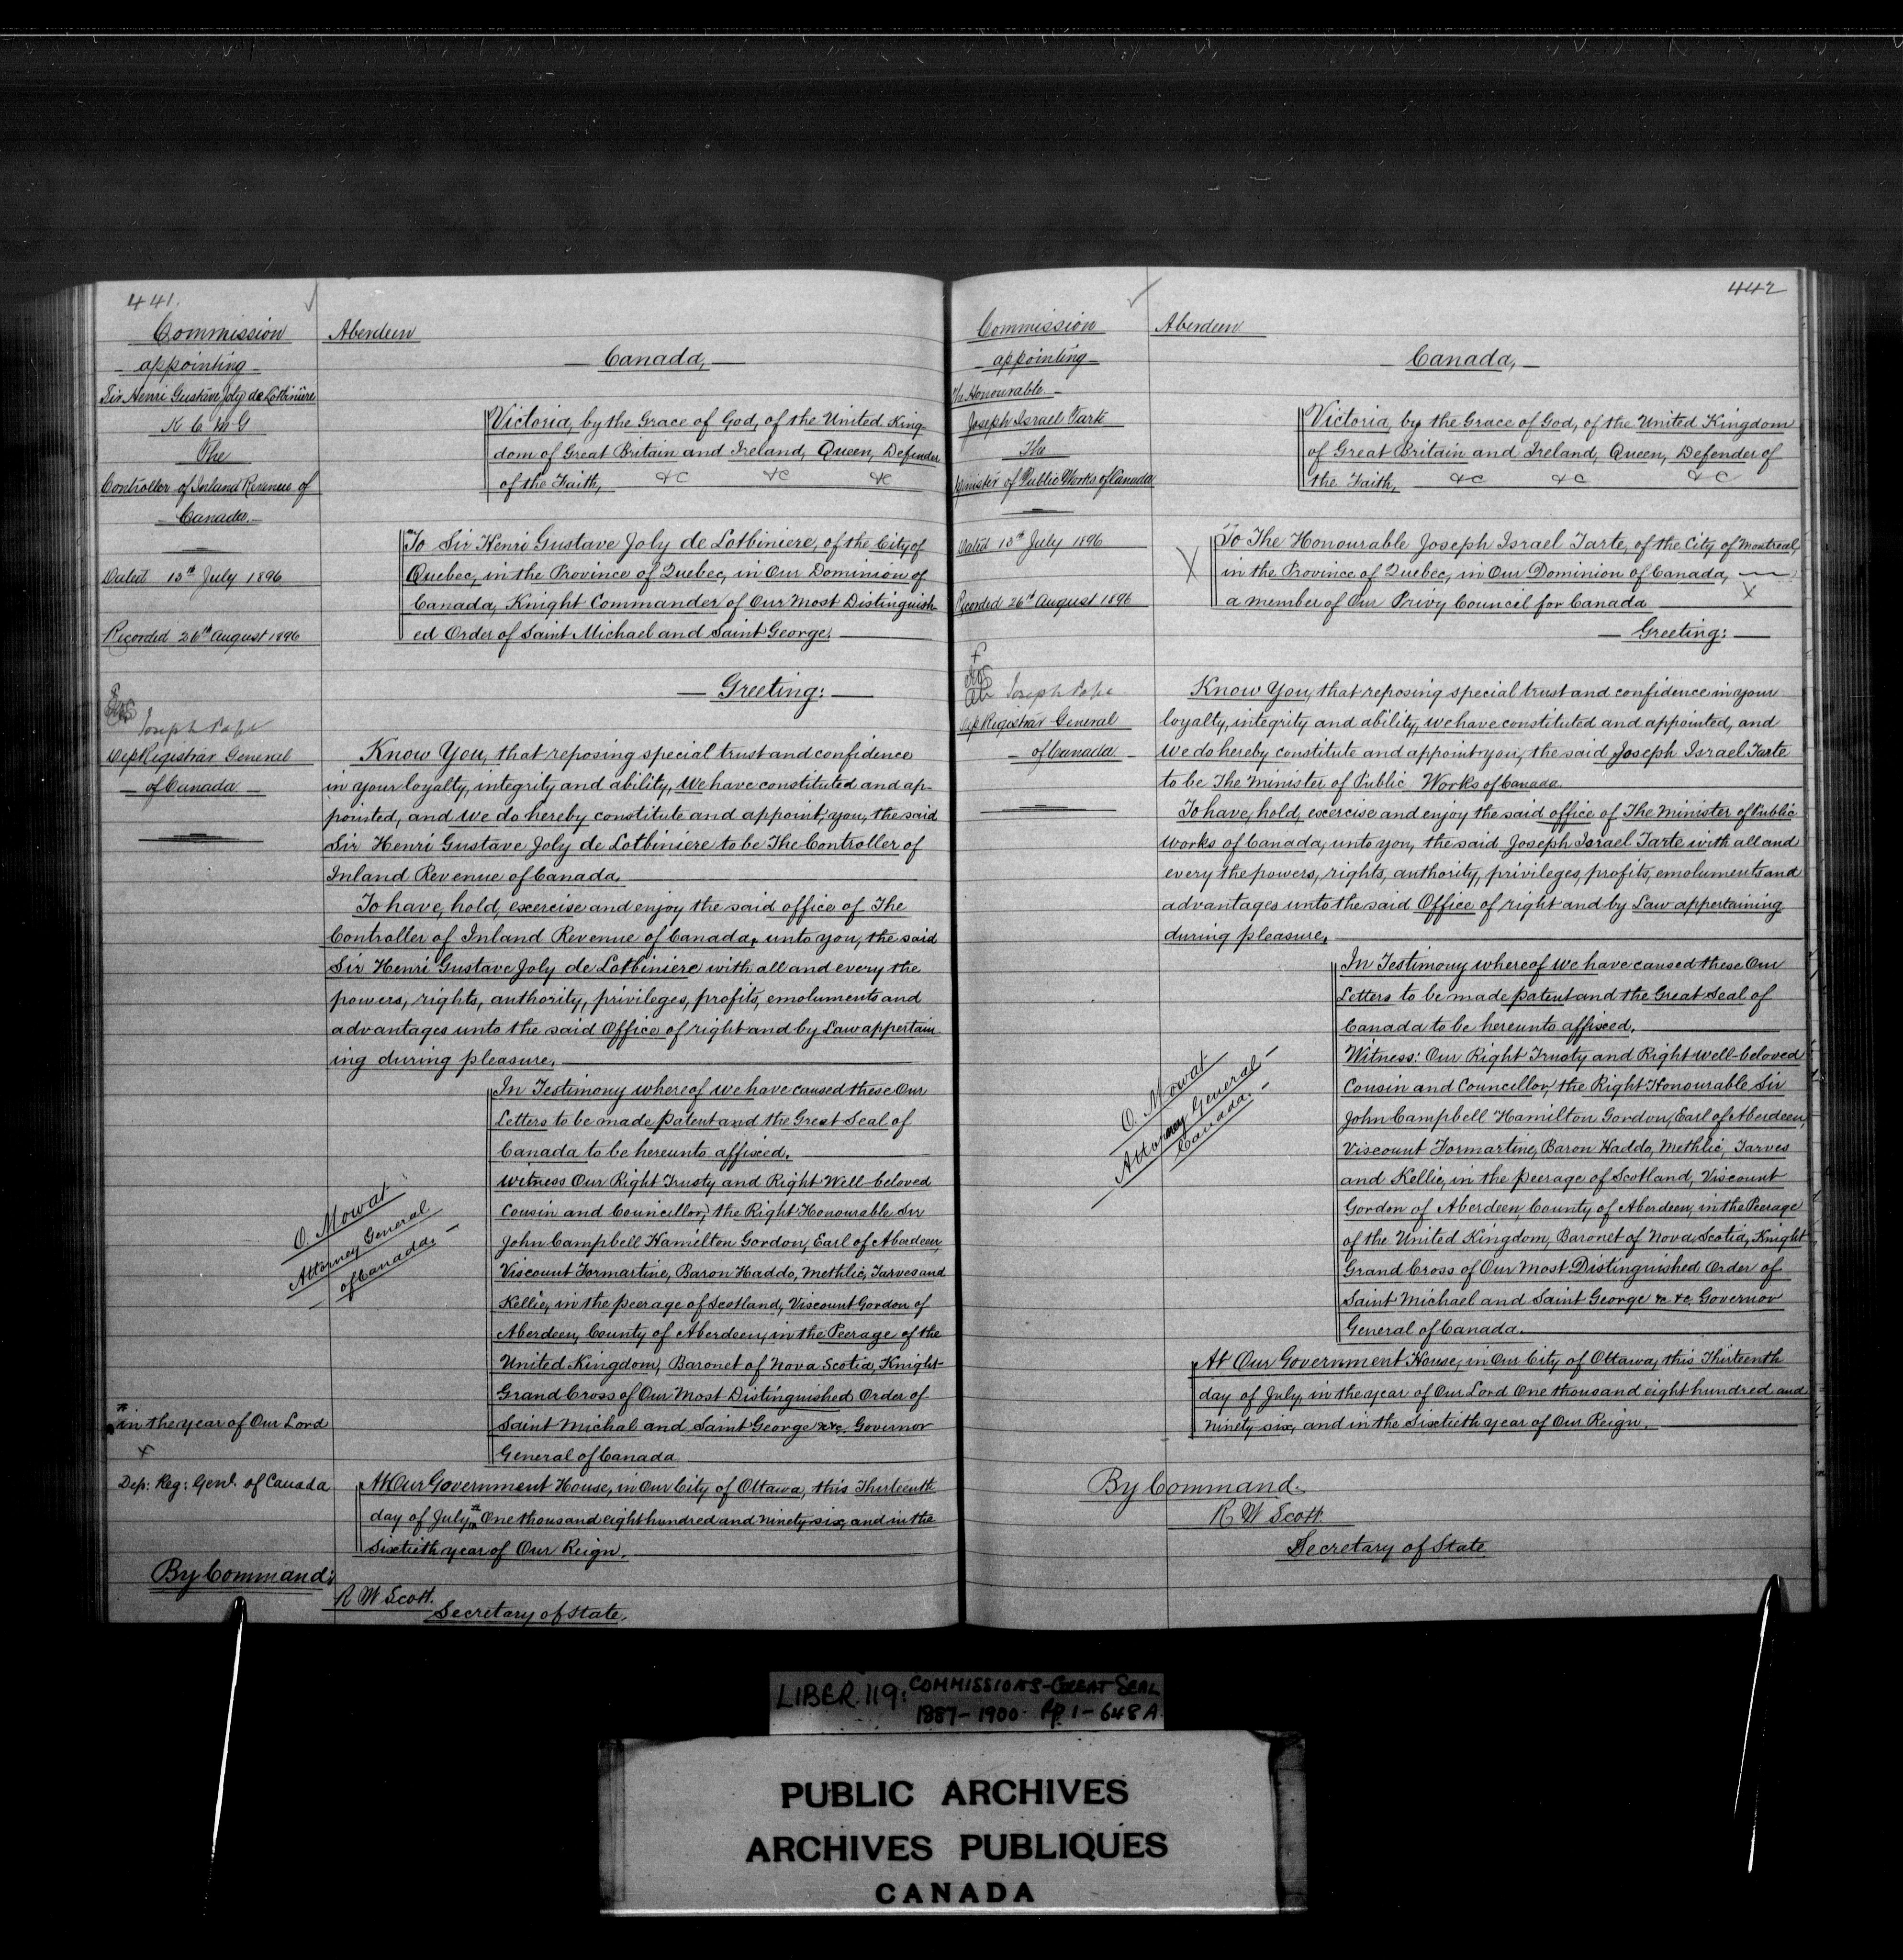 441.
Commission
appointing
Sir Henri Gustave Joly de Lotbinière
K C M G
The
Controller of Inland Revenue of
Canada.
Dated 13th July 1896
Recorded 26th August 1896
Joseph Pope
Dep Registrar General
of Canada
Aberdeen
Canada,
Victoria, by the Grace of God, of the United King-
dom of Great Britain and Ireland, Queen, Defender
of the Faith, &c &c &c
To Sir Henri Gustave Joly de Lotbiniere, of the City of
Quebec, in the Province of Quebec, in Our Dominion of
Canada, Knight Commander of Our Most Distinguish-
ed Order of Saint Michael and Saint George.
Greeting:
Know You, that reposing special trust and confidence
in your loyalty, integrity and ability, We have constituted and ap-
pointed, and We do hereby constitute and appoint, you, the said
Sir Henri Gustave Joly de Lotbiniere to be The Controller of
Inland Revenue of Canada.
To have, hold, exercise and enjoy the said office of The
Controller of Inland Revenue of Canada, unto you, the said
Sir Henri Gustave Joly de Lotbiniere with all and every the
powers, rights, authority, privileges, profits, emoluments and
advantages unto the said Office of right and by Law appertain-
ing during pleasure.
In Testimony whereof we have caused these Our
Letters to be made Patent and the Great Seal of
Canada to be hereunto affixed.
Witness Our Right Trusty and Right Well-beloved
Cousin and Councillor, the Right Honourable Sir
John Campbell Hamilton Gordon, Earl of Aberdeen,
Viscount Formartine, Baron Haddo, Methlic, Tarves and
Kellie, in the peerage of Scotland, Viscount Gordon of
Aberdeen, County of Aberdeen, in the Peerage of the
United Kingdom, Baronet of Nova Scotia, Knight
Grand Cross of Our Most Distinguished Order of
Saint Michal and Saint George &c &c. Governor
General of Canada
O. Mowat
Attorney General
of Canada.
in the year of Our Lord
Dep: Reg: Genl. of Canada
At Our Government House, in Our City of Ottawa, this Thirteenth
day of July, One thousand eight hundred and ninety six, and in the
Sixtieth year of Our Reign.
By Command:
R W Scott.
Secretary of State.
442
Commission
appointing
The Honourable
Joseph Israel Tarte
The
Minister of Public Works of Canada
Dated 13th July 1896
Recorded 26th August 1896
Joseph Pope
Dep Registrar General
of Canada
Aberdeen
Canada,
Victoria, by the Grace of God, of the United Kingdom
of Great Britain and Ireland, Queen, Defender of
the Faith, &c &c &c
To The Honourable Joseph Israel Tarte, of the City of Montreal,
in the Province of Quebec, in Our Dominion of Canada,
a member of Our Privy Council for Canada
Greeting:
Know You, that reposing special trust and confidence in your
loyalty, integrity and ability, we have constituted and appointed, and
We do hereby constitute and appoint you, the said Joseph Israel Tarte
to be The Minister of Public Works of Canada
To have, hold, exercise and enjoy the said office of The Minister of Public
Works of Canada, unto you, the said Joseph Israel Tarte with all and
every the powers, rights, authority, privileges, profits, emoluments and
advantages unto the said Office of right and by Law appertaining
during pleasure.
In Testimony whereof We have caused these Our
Letters to be made Patent and the Great Seal of
Canada to be hereunto affixed.
Witness: Our Right Trusty and Right well-beloved
Cousin and Councillor, the Right Honourable Sir
John Campbell Hamilton Gordon, Earl of Aberdeen,
Viscount Formartine, Baron Haddo, Methlic, Tarves
and Kellie, in the peerage of Scotland, Viscount
Gordon of Aberdeen, County of Aberdeen, in the Peerage
of the United Kingdom, Baronet of Nova Scotia, Knight
Grand Cross of Our Most Distinguished Order of
Saint Michael and Saint George &c &c. Governor
General of Canada.
O. Mowat
Attorney General
Canada.
At Our Government House, in Our City of Ottawa, this Thirteenth
day of July, in the year of Our Lord One thousand eight hundred and
Ninety six, and in the Sixtieth year of Our Reign.
By Command.
R W Scott.
Secretary of State
LIBER. 119: COMMISSIONS-GREAT SEAL
1887-1900. Pp. 1-648A.
PUBLIC ARCHIVES
ARCHIVES PUBLIQUES
CANADA